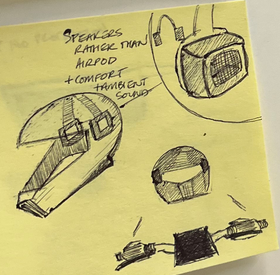 SPEAKERS
RATHER THAN
AIRPOD
+ COMFORT
+ AMBIENT
SOUND